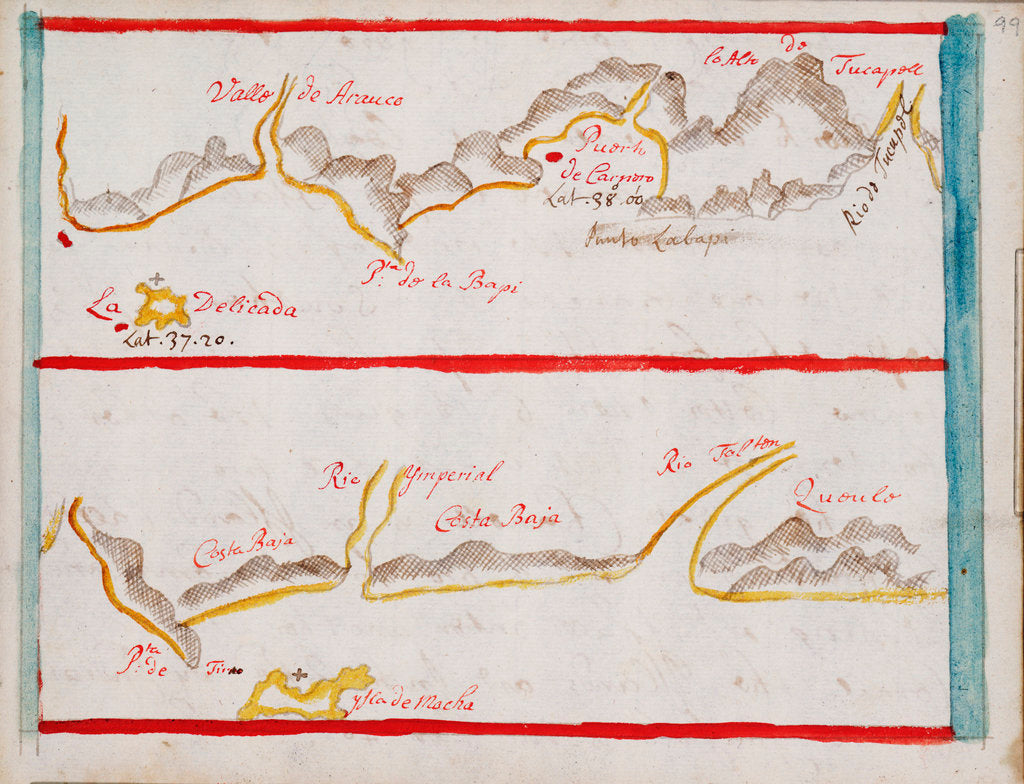 99
Valle de Arauco
lo Alto de Tucapell
Puerto
de Carnero
Lat. 38. 00
Rio de Tucapel
Punto Labapi
P.ta de la Bapi
La Delicada
Lat. 37. 20.
Rio Ymperial
Rio Tolten
Queule
Costa Baja
Costa Baja
P.ta de Tirno
ysla de Mocha